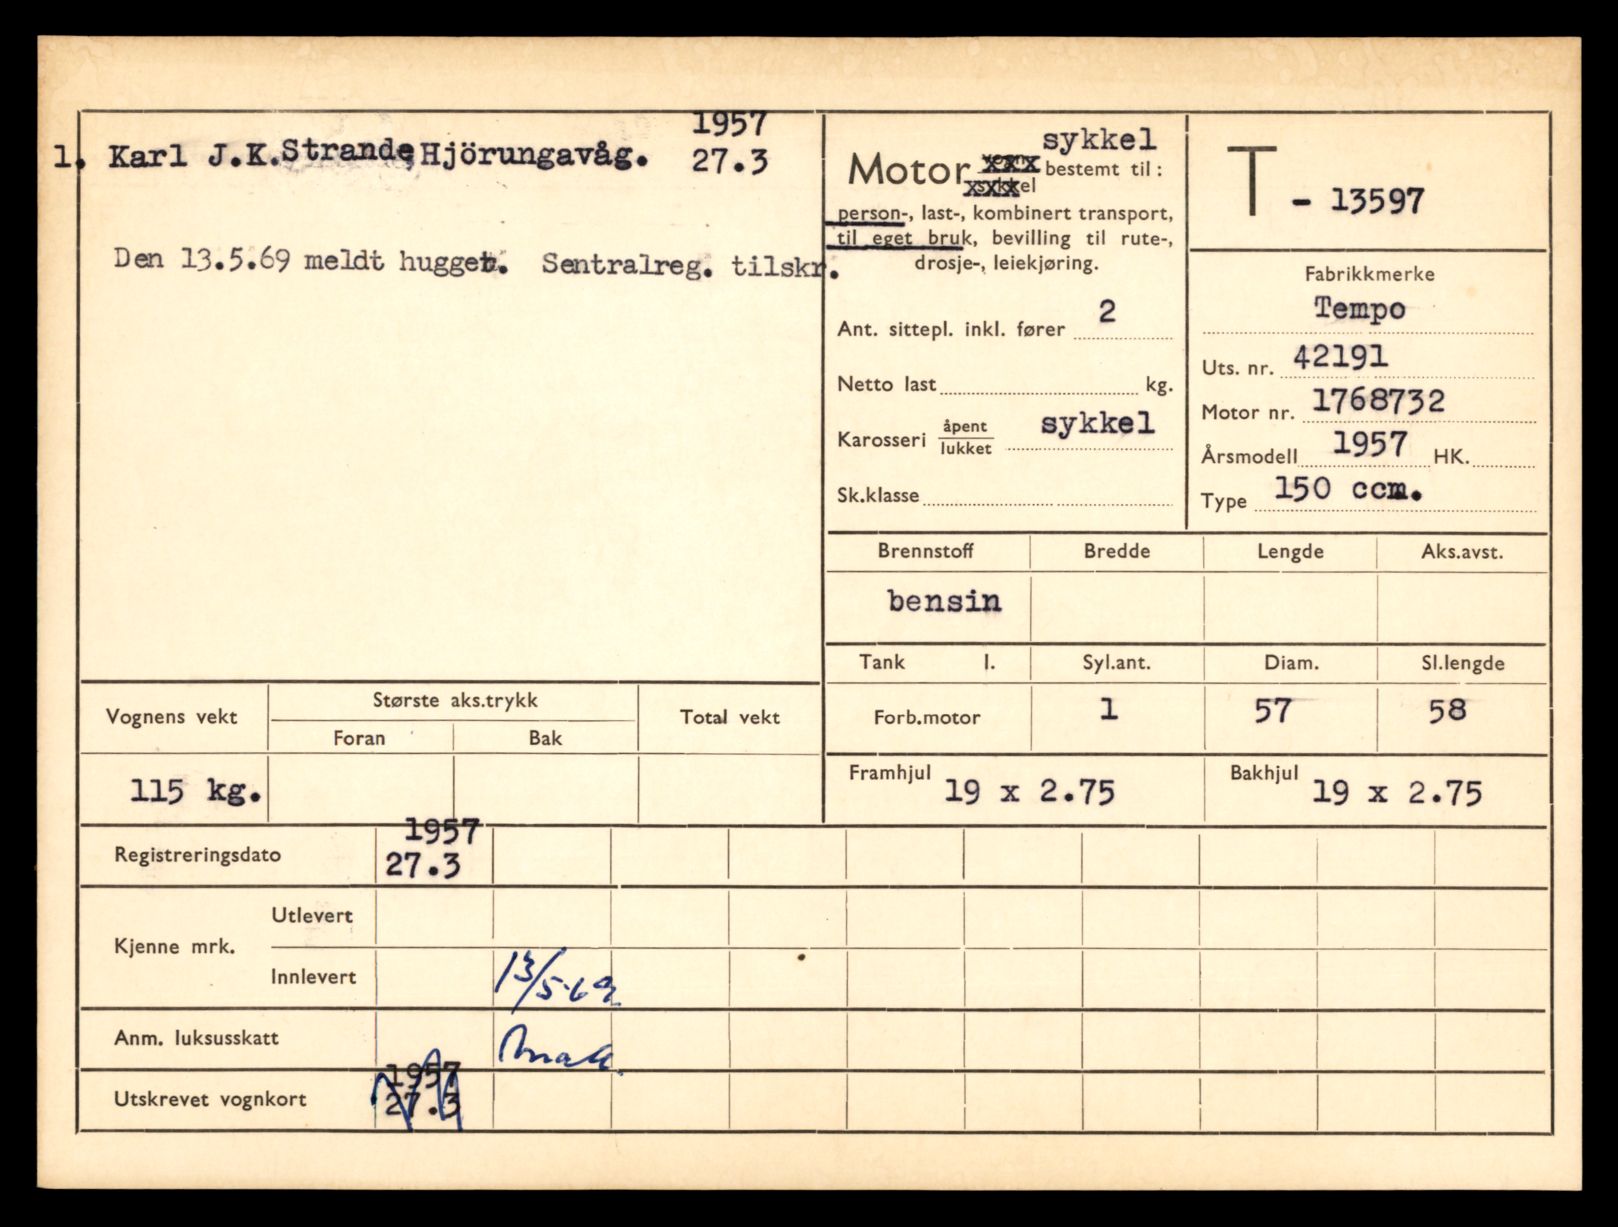 1957
1. Karl J.K. Strande, Hjörungavåg. 27.3
Den 13.5.69 meldt hugget. Sentralreg. tilskr.
sykkel
Motor xxx bestemt til:
person-, last-, kombinert transport,
til eget bruk, bevilling til rute-,
drosje-, leiekjøring.
Ant. sittepl. inkl. fører 2
Netto last kg.
Karosseri åpent/lukket sykkel
Sk.klasse
T - 13597
Fabrikkmerke
Tempo
Uts. nr. 42191
Motor nr. 1768732
Årsmodell 1957 HK.
Type 150 ccm.
Brennstoff Bredde Lengde Aks.avst.
bensin
Tank l. Syl.ant. Diam. Sl.lengde
Forb.motor 1 57 58
Vognens vekt Største aks.trykk Total vekt
Foran Bak
115 kg.
Framhjul 19 x 2.75 Bakhjul 19 x 2.75
Registreringsdato 1957
27.3
Kjenne mrk.
Utlevert
Innlevert 13/5-69
Anm. luksusskatt
Utskrevet vognkort 1957
27.3